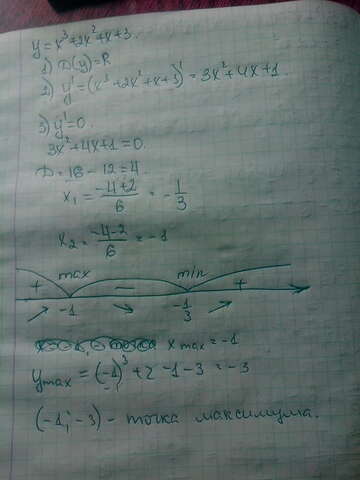 y=x³+2x²+x+3.
1) D(y)=R
2) y'=(x³+2x²+x+3)'=3x²+4x+1.
3) y'=0.
3x²+4x+1=0.
D=16-12=4.
x₁=(-4+2)/6=-1/3
x₂=(-4-2)/6=-1
max min
+ − +
↗ -1 ↘ -1/3 ↗
x max=-1
y max=(-1)³+2-1-3=-3
(-1; -3) - точка максимума.